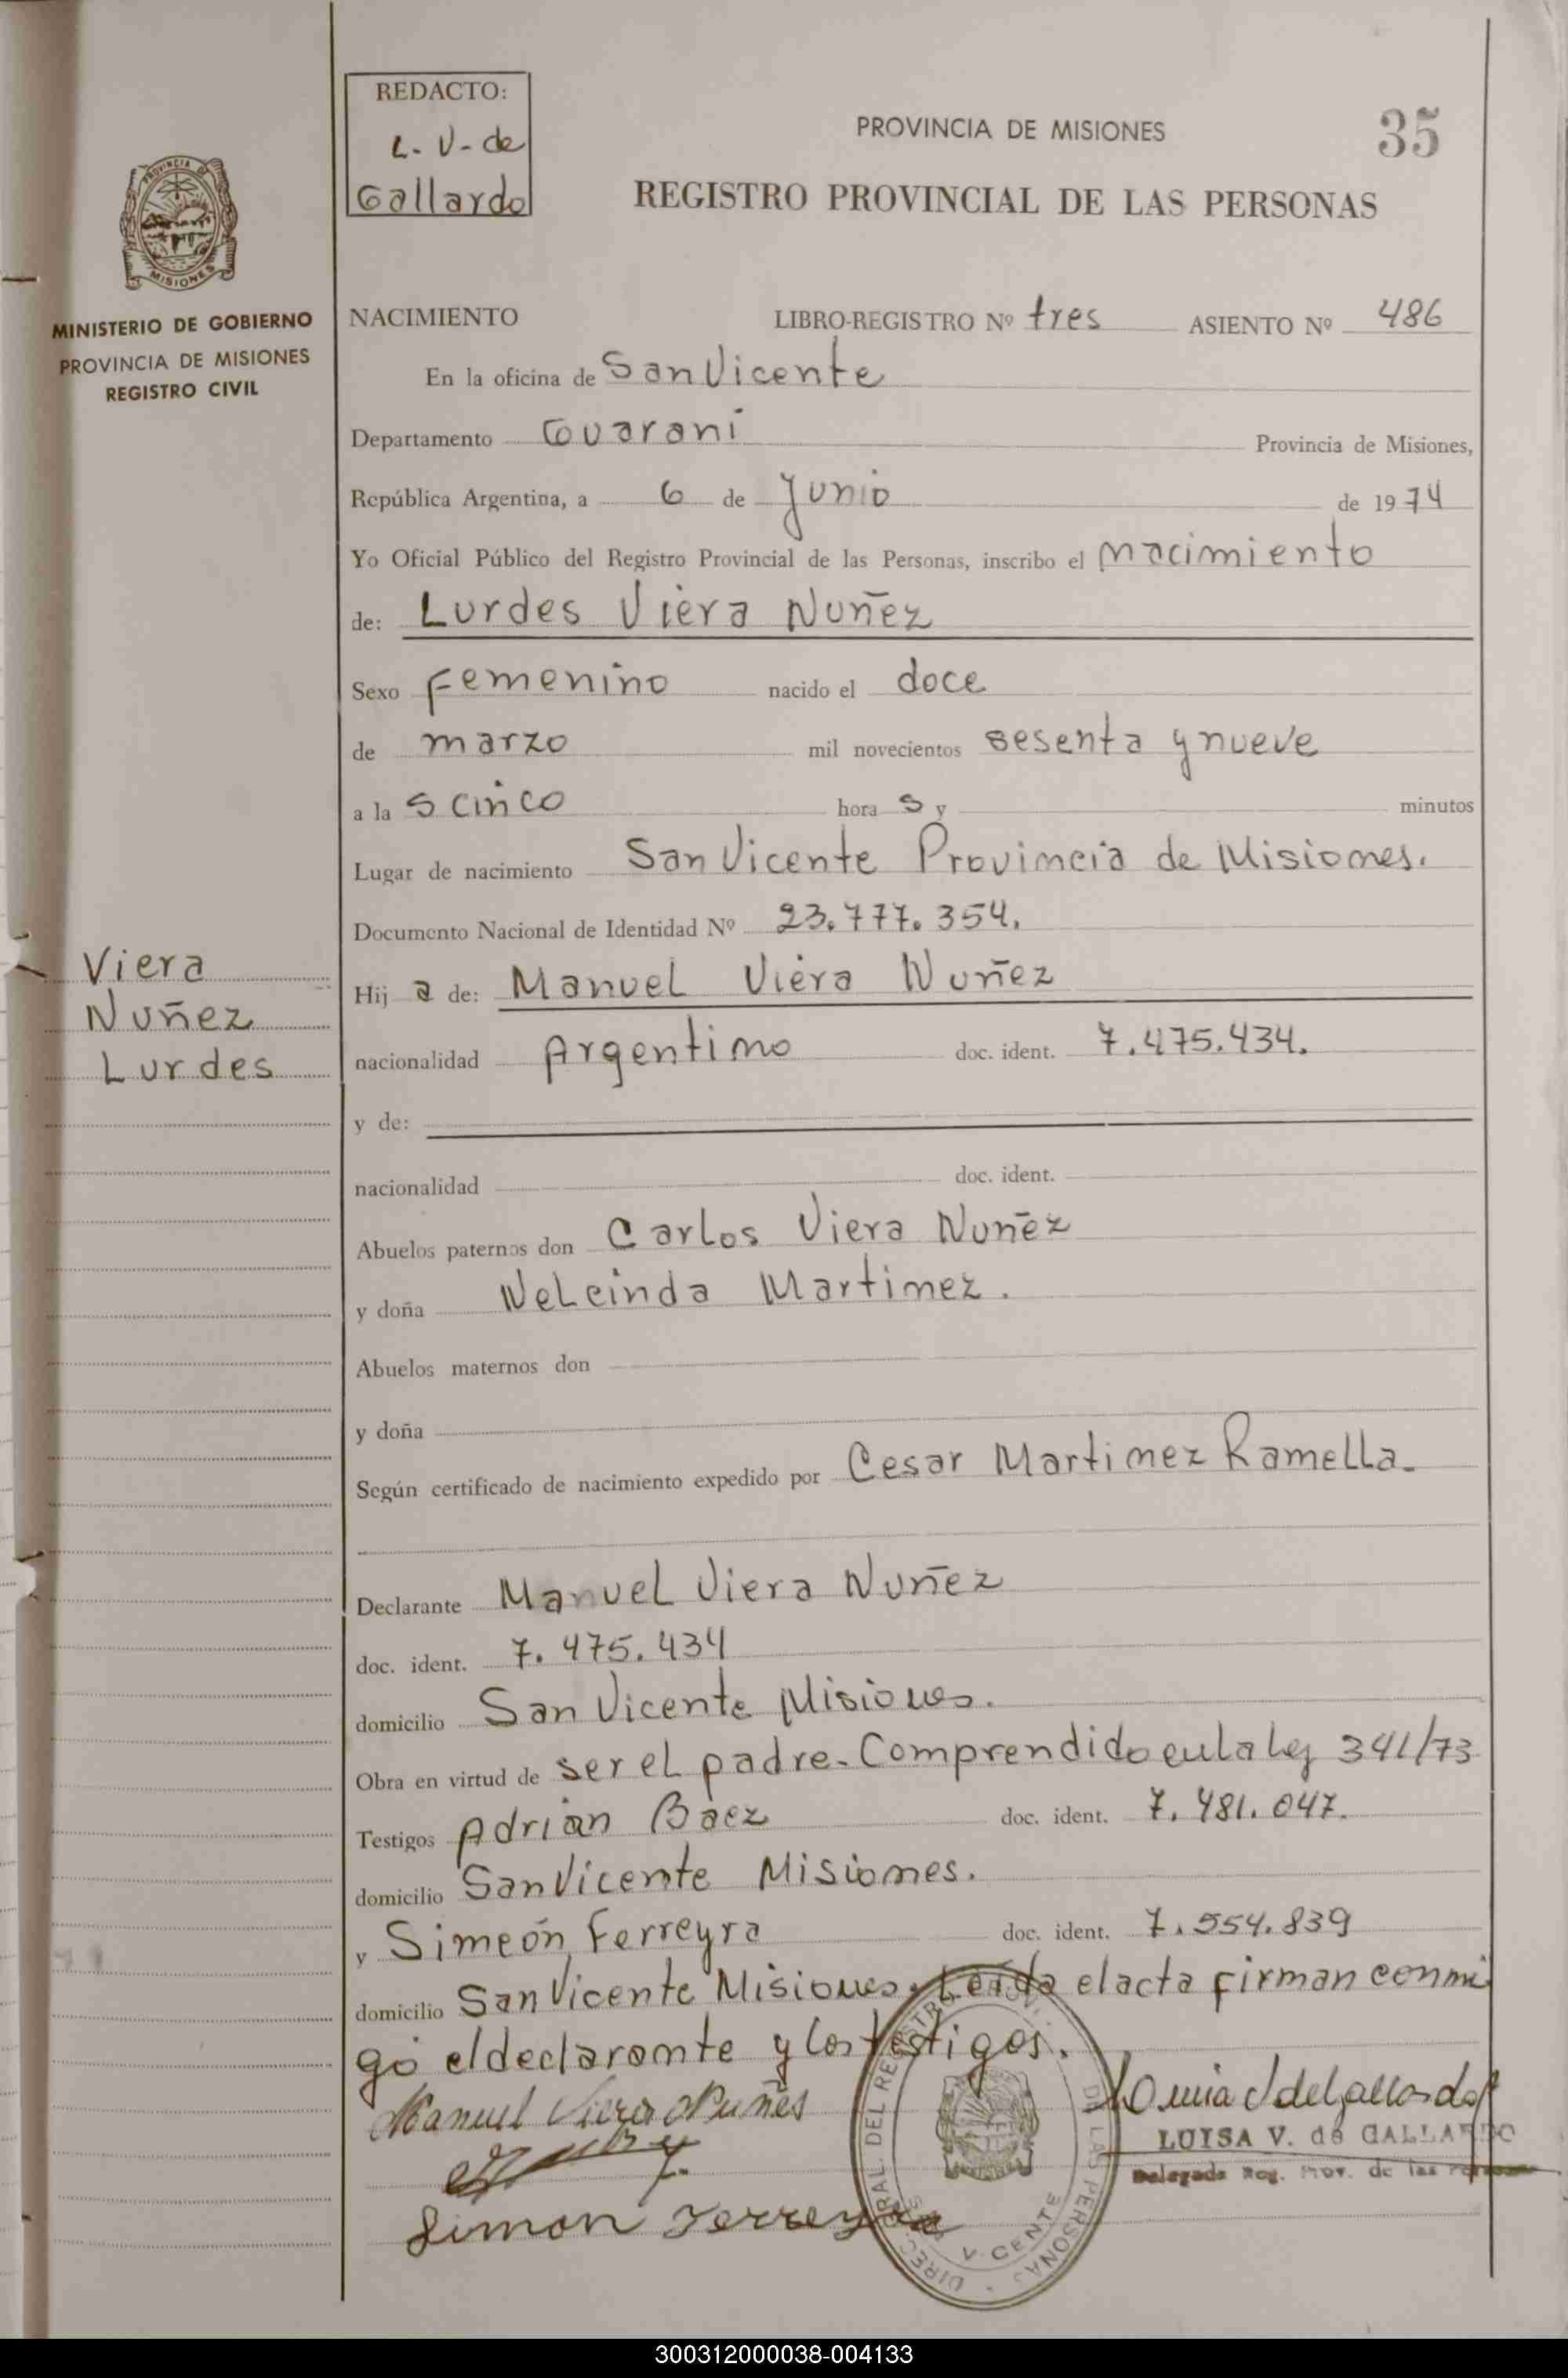 REDACTO:
L. V. de
Gallardo
PROVINCIA DE MISIONES
35
REGISTRO PROVINCIAL DE LAS PERSONAS
PROVINCIA DE
MISIONES
MINISTERIO DE GOBIERNO
PROVINCIA DE MISIONES
REGISTRO CIVIL
NACIMIENTO LIBRO-REGISTRO Nº tres ASIENTO Nº 486
En la oficina de San Vicente
Departamento Guarani Provincia de Misiones,
República Argentina, a 6 de Junio de 1974
Yo Oficial Público del Registro Provincial de las Personas, inscribo el nacimiento
de: Lurdes Viera Nuñez
Sexo Femenino nacido el doce
de marzo mil novecientos sesenta y nueve
a la s cinco hora s y minutos
Lugar de nacimiento San Vicente Provincia de Misiones.
Documento Nacional de Identidad Nº 23.777.354.
Viera
Nuñez
Lurdes
Hij a de: Manuel Viera Nuñez
nacionalidad Argentino doc. ident. 7.475.434.
y de:
nacionalidad doc. ident.
Abuelos paternos don Carlos Viera Nuñez
y doña Neleinda Martinez.
Abuelos maternos don
y doña
Según certificado de nacimiento expedido por Cesar Martinez Ramella.
Declarante Manuel Viera Nuñez
doc. ident. 7.475.434
domicilio San Vicente Misiones.
Obra en virtud de ser el padre. Comprendido en la ley 341/73
Testigos Adrian Baez doc. ident. 7.481.047.
domicilio San Vicente Misiones.
y Simeón Ferreyra doc. ident. 7.554.839
domicilio San Vicente Misiones. Leída el acta firman conmi
go el declarante y los testigos.
Manuel Viera Nuñes
Simon Ferreyra
LUISA V. de GALLARDO
Delegada Reg. Prov. de las Personas
DIREC GRAL. DEL REGISTRO DE LAS PERSONAS
V CENTE
300312000038-004133